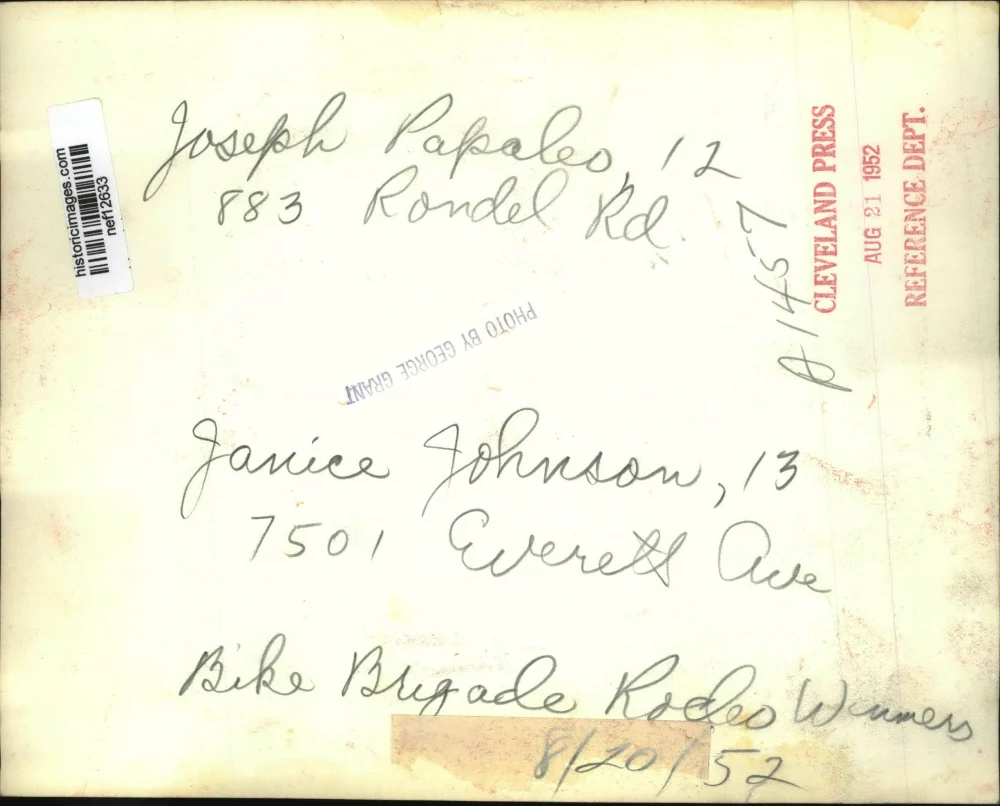 Joseph Papaleo, 12
883 Rondel Rd.
historicimages.com
nef12633
CLEVELAND PRESS
AUG 21 1952
REFERENCE DEPT.
A1457
PHOTO BY GEORGE GRANT
Janice Johnson, 13
7501 Everett Ave
Bike Brigade Rodeo Winners
8/20/52